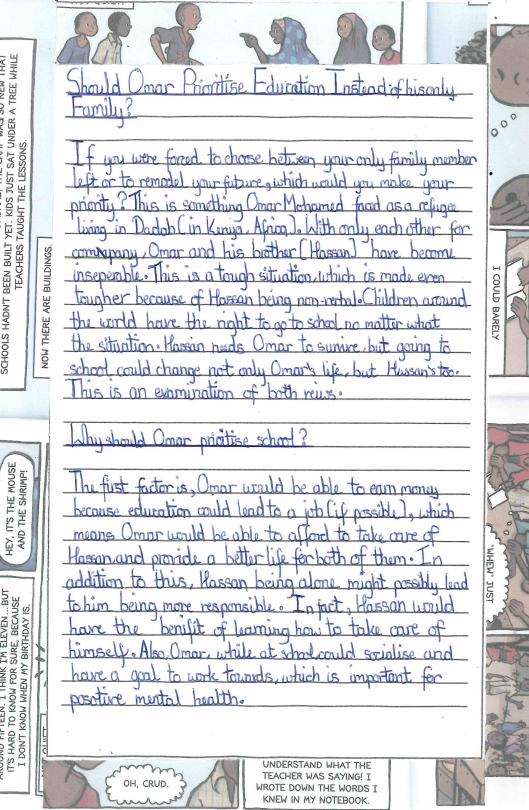 Should Omar Prioritise Education Instead of his only
Family?
If you were forced to choose between your only family member
left or to remodel your future, which would you make your
priority? This is something Omar Mohamed faced as a refugee
living in Dadab (in Kenya, Africa). With only each other for
company, Omar and his brother (Hassan) have become
inseperable. This is a tough situation, which is made even
tougher because of Hassan being non-verbal. Children around
the world have the right to go to school no matter what
the situation. Hassan needs Omar to survive, but going to
school could change not only Omar's life, but Hassan's too.
This is an examination of both veiws.
Why should Omar prioritise school?
The first factor is, Omar would be able to earn money
because education could lead to a job (if possible), which
means Omar would be able to afford to take care of
Hassan and provide a better life for both of them. In
addition to this, Hassan being alone might possibly lead
to him being more responsible. In fact, Hassan would
have the benifit of learning how to take care of
himself. Also, Omar, while at school could socialise and
have a goal to work towards, which is important for
positive mental health.
SCHOOLS HADN'T BEEN BUILT YET.
KIDS JUST SAT UNDER A TREE WHILE
TEACHERS TAUGHT THE LESSONS.
NOW THERE ARE BUILDINGS.
HEY, IT'S THE MOUSE
AND THE SHRIMP!
AROUND FIFTEEN. I THINK I'M ELEVEN...BUT
IT'S HARD TO KNOW FOR SURE, BECAUSE
I DON'T KNOW WHEN MY BIRTHDAY IS.
OH, CRUD.
UNDERSTAND WHAT THE
TEACHER WAS SAYING! I
WROTE DOWN THE WORDS I
KNEW IN MY NOTEBOOK.
I COULD BARELY
"WHEW," JUST